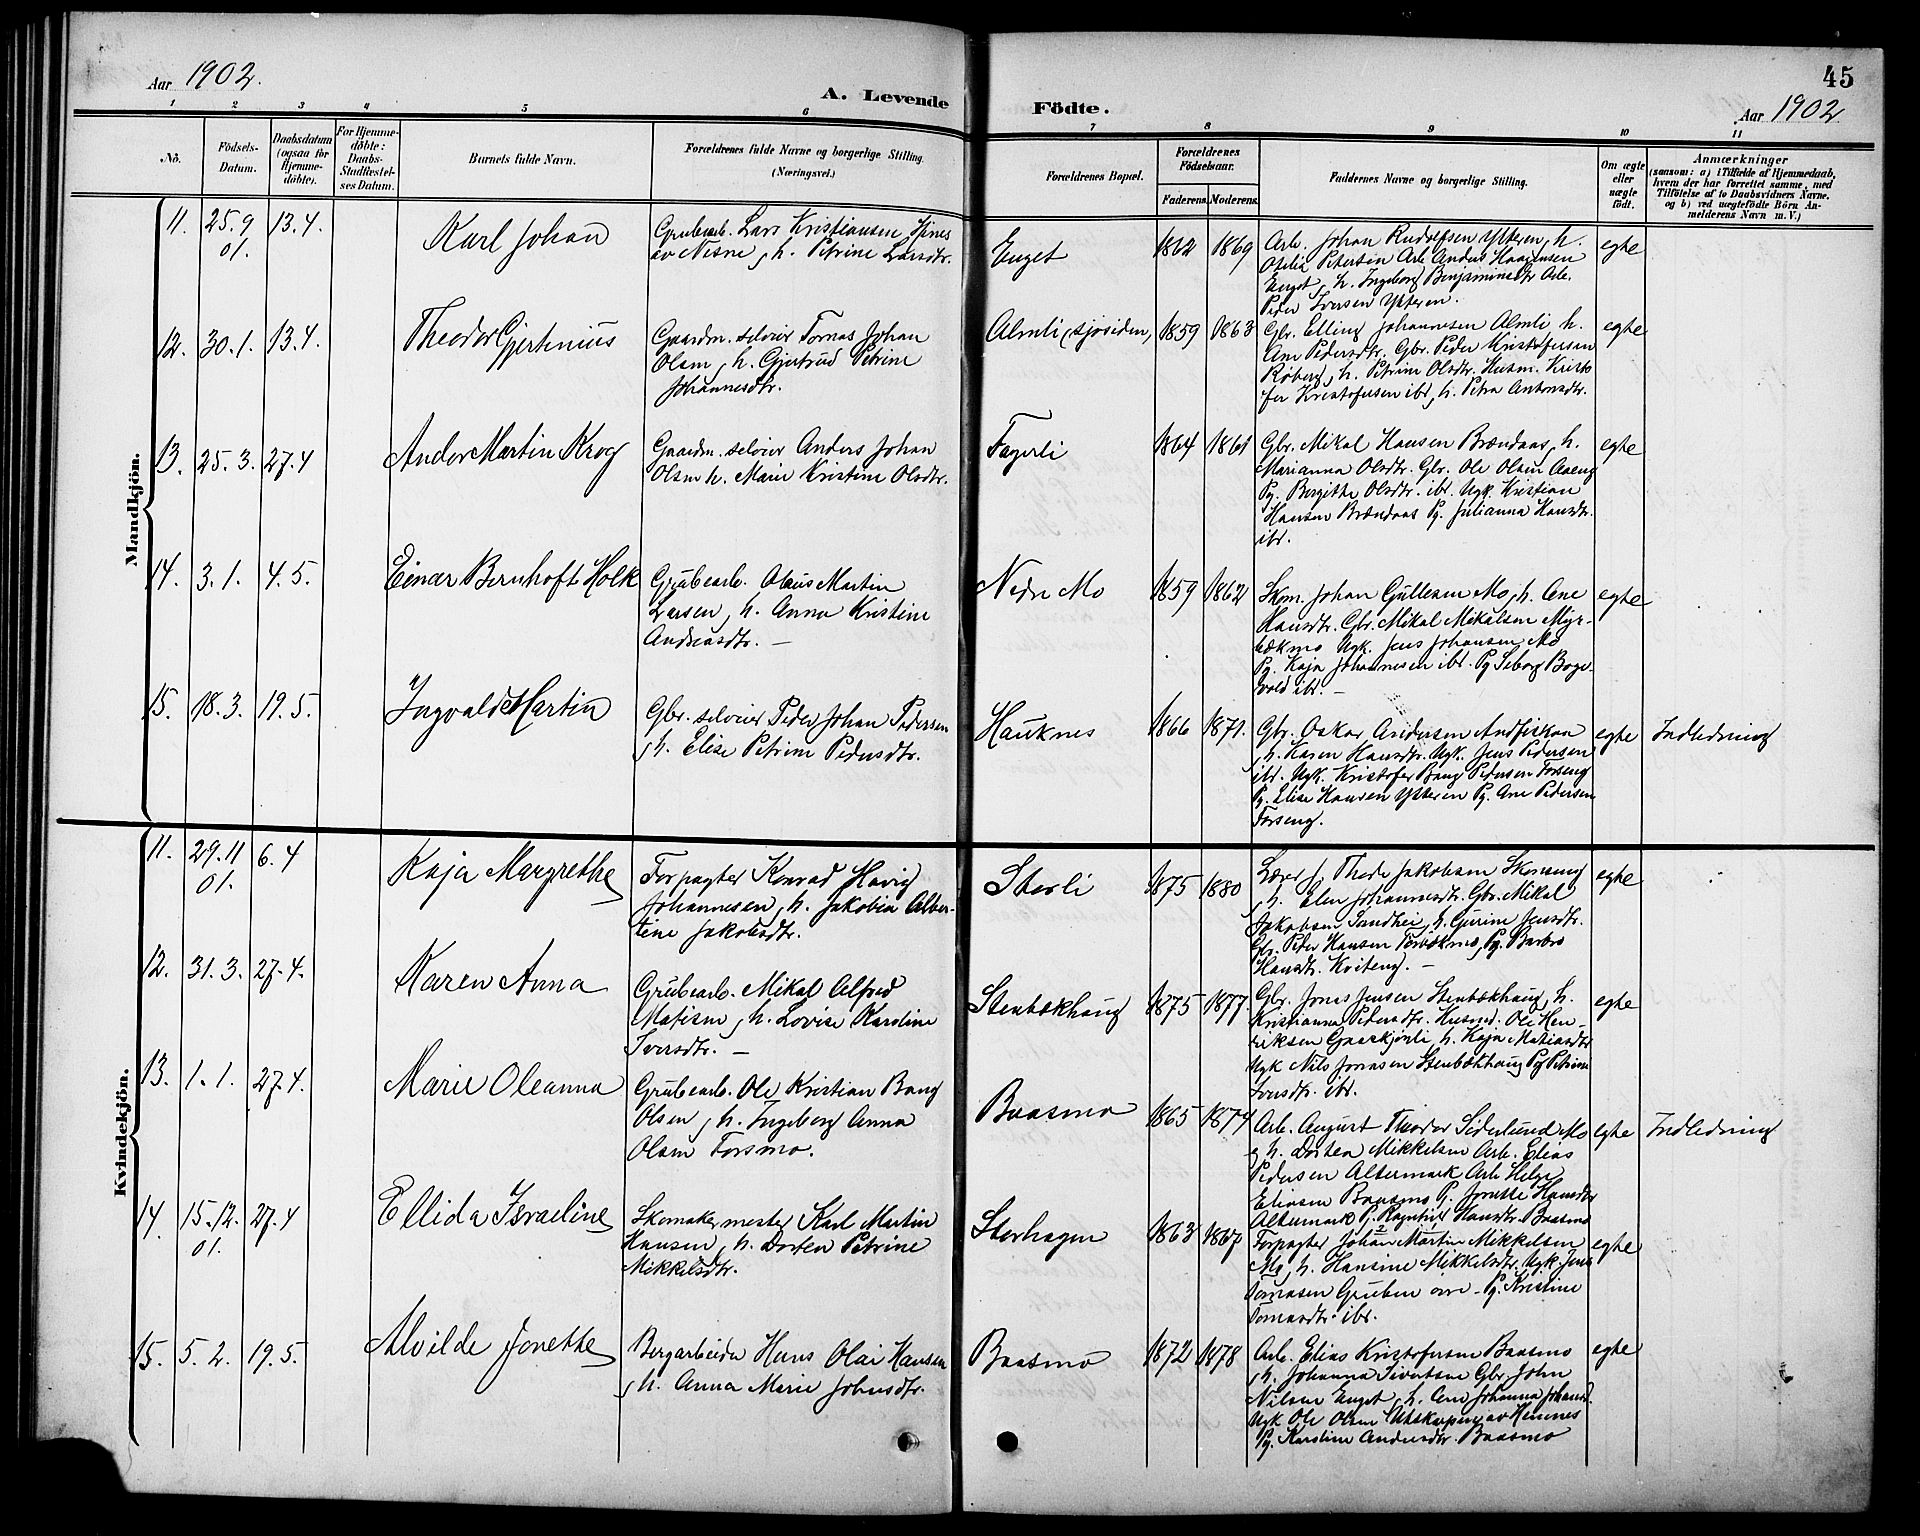 Aar 1902.
A. Levende
Födte.
45
Aar 1902
1 2 3 4 5 6 7 8 9 10 11
No.
Födsels-
Datum.
Daabsdatum
(ogsaa for
Hjemme-
döbte).
For Hjemme-
döbte:
Daabs-
Stadfæstel-
ses Datum.
Barnets fulde Navn.
Forældrenes fulde Navne og borgerlige Stilling.
(Næringsvei.)
Forældrenes Bopæl.
Forældrenes
Födselsaar.
Faderens.
Moderens.
Faddernes Navne og borgerlige Stilling.
Om ægte
eller
uægte
födt.
Anmærkninger
(saasom: a) i Tilfælde af Hjemmedaab,
hvem der har forrettet samme, med
Tilföielse af to Daabsvidners Navne,
og b) ved uægtefödte Börn An-
melderens Navn m. V.)
Mandkjön.
11. 25.9 13.4. Karl Johan
01.
Grubearb. Lars Kristiansen
av Nesne, h. Petrine Larsdtr.
Enget 1862 1869
Arb. Johan Rudolfsen Ytteren, h.
Otelia Petersen Arb. Anders Haagensen
Enget, h. Ingeborg Benjaminsdtr Arb.
Peder Iversen Ytteren.
egte
12. 30.1. 13.4. Theodor Gjertinius
Gaardm. selvier Tomas Johan
Olsen, h. Gjertrud Petrine
Johannesdtr.
Almli (sjosiden, 1859 1863
Gbr. Elling Johannesen Almli h.
Ane Pedersdtr. Gbr. Peder Kristofersen
Røberg, h. Petrine Olsdtr. Husm. Kristo
fer Kristofersen ibr, h. Petra Antonsdtr.
egte
13. 25.3. 27.4 Andor Martin Krog
Gaardm. selvier Anders Johan
Olsen h. Marie Kristine Olsdtr.
Fagerli 1864 1861
Gbr. Mikal Hansen Brændaas, h.
Marianna Olsdtr. Gbr. Ole Olsen Aaeng
Pg. Bergithe Olsdtr. ibr. Ugk. Kristian
Hansen Brændaas Pg. Julianna Hansdtr.
ibr.
egte
14. 3.1. 4.5. Einar Bernhoft Holk
Grubearb. Olaus Martin
Larsen, h. Anna Kristine
Andreasdtr. —
Nedre Mo 1859 1862
Skom. Johan Gullesen Mo, h. Ane
Hansdtr. Gbr. Mikal Mikalsen Myr-
bækmo Ugk. Jens Johansen Mo
Pg. Kaja Johannesen ibr. Pg
ibr. —
egte
15. 18.3. 19.5. Ingvald Martin
Gbr. selvier Peder Johan Pedersen
, h. Elise Petrine Pedersdtr.
Hauknes 1866 1871.
Gbr. Oskar Andersen Andfiskaa
, h. Karen Hansdtr. Ugk. Jens Pedersen
ibr. Ugk. Kristofer Bang Pedersen Forseng
Pg. Elise Hansen Ytteren Pg. Ane Pedersen
Forseng.
egte Indledning
Kvindekjön.
11. 29.11 6.4 Kaja Margrethe
01.
Forpagter Konrad Havig
Johannesen, h. Jakobia Alber-
tine Jakobsdtr.
Storli 1875 1880
Thode Jakobsen
, h. Elen Johannesdtr. Gbr. Mikal
Jakobsen Sandhei, h. Gurine Jensdtr.
Gbr. Peder Hansen Torbækmo, Pg. Barbro
Hansdtr. Kviteng. —
egte
12. 31.3. 27.4. Karen Anna
Grubearb. Mikal Alfred
Matisen, h. Lovise Karoline
Iversdtr. —
Stenbækhaug 1875 1877.
Gbr. Jonas Jensen Stenbækhaug, h.
Kristianna Pedersdtr. Husmd. Ole Hen-
riksen h. Kaja Matiasdtr
Ugk Nils Jonasen Stenbækhaug Pg Petrine
Iversdtr. ibr.
egte
13. 1.1. 27.4. Marie Oleanna
Grubearb. Ole Kristian Bang
Olsen, h. Ingeborg Anna
Olsen Forsmo.
Baasmo 1865 1874
Arb. August Theodor Siderlund Mo
, h. Dorten Mikkelsen Arb. Elias
Pedersen Altermark Arb. Helge
Eliasen Baasmo P. Jonette Hansdtr
Altermark Pg. Ragnhild Hansdtr. Baasmo
egte Indledning
14. 15.12. 27.4 Ellida Israeline
01.
Skomakermester Karl Martin
Hansen, h. Dorten Petrine
Mikkelsdtr.
Storhagen 1863 1867
Forpagter Johan Martin Mikkelsen
Mo, h. Hansine Mikkelsdtr. Ugk. Jens
Tomasen Gruben Pg. Kristine
Tomasdtr. ibr.
egte
15. 5.2. 19.5. Alvilde Jonette
Bergarbeider Hans Olai Hansen
, h. Anna Marie Johnsdtr.
Baasmo 1872 1878
Arb. Elias Kristofersen Baasmo
, h. Johanna Sivertsen Gbr. John
Nilsen Enget, h. Ane Johanna Johansd.
Ugk Ole Olsen Utskarpen av Hemnes
Pg. Karoline Andersdtr. Baasmo
egte